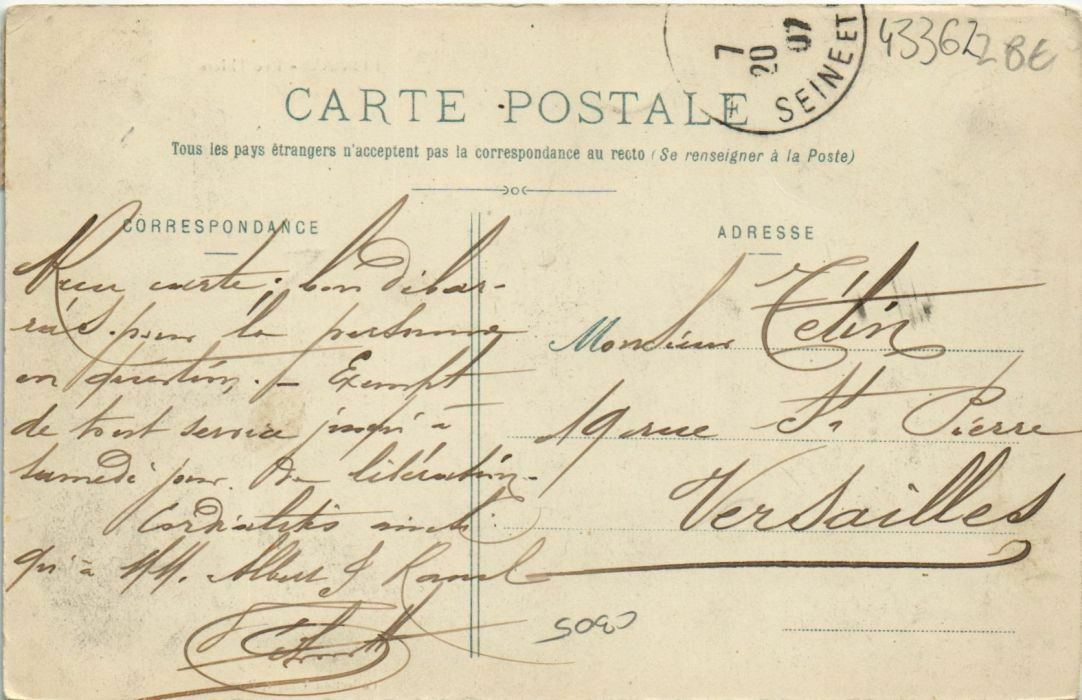 433622 BE
7
20
07
SEINE ET
CARTE POSTALE
Tous les pays étrangers n'acceptent pas la correspondance au recto (Se renseigner à la Poste)
CORRESPONDANCE
ADRESSE
carte; bon débar-
ras pour la personne
en question. — Exempt
de tout service jusqu'à
samedi jour de libération.
Cordialités ainsi
qu'à MM. Albert &
Monsieur Tétin
19 rue St Pierre
Versailles
5080